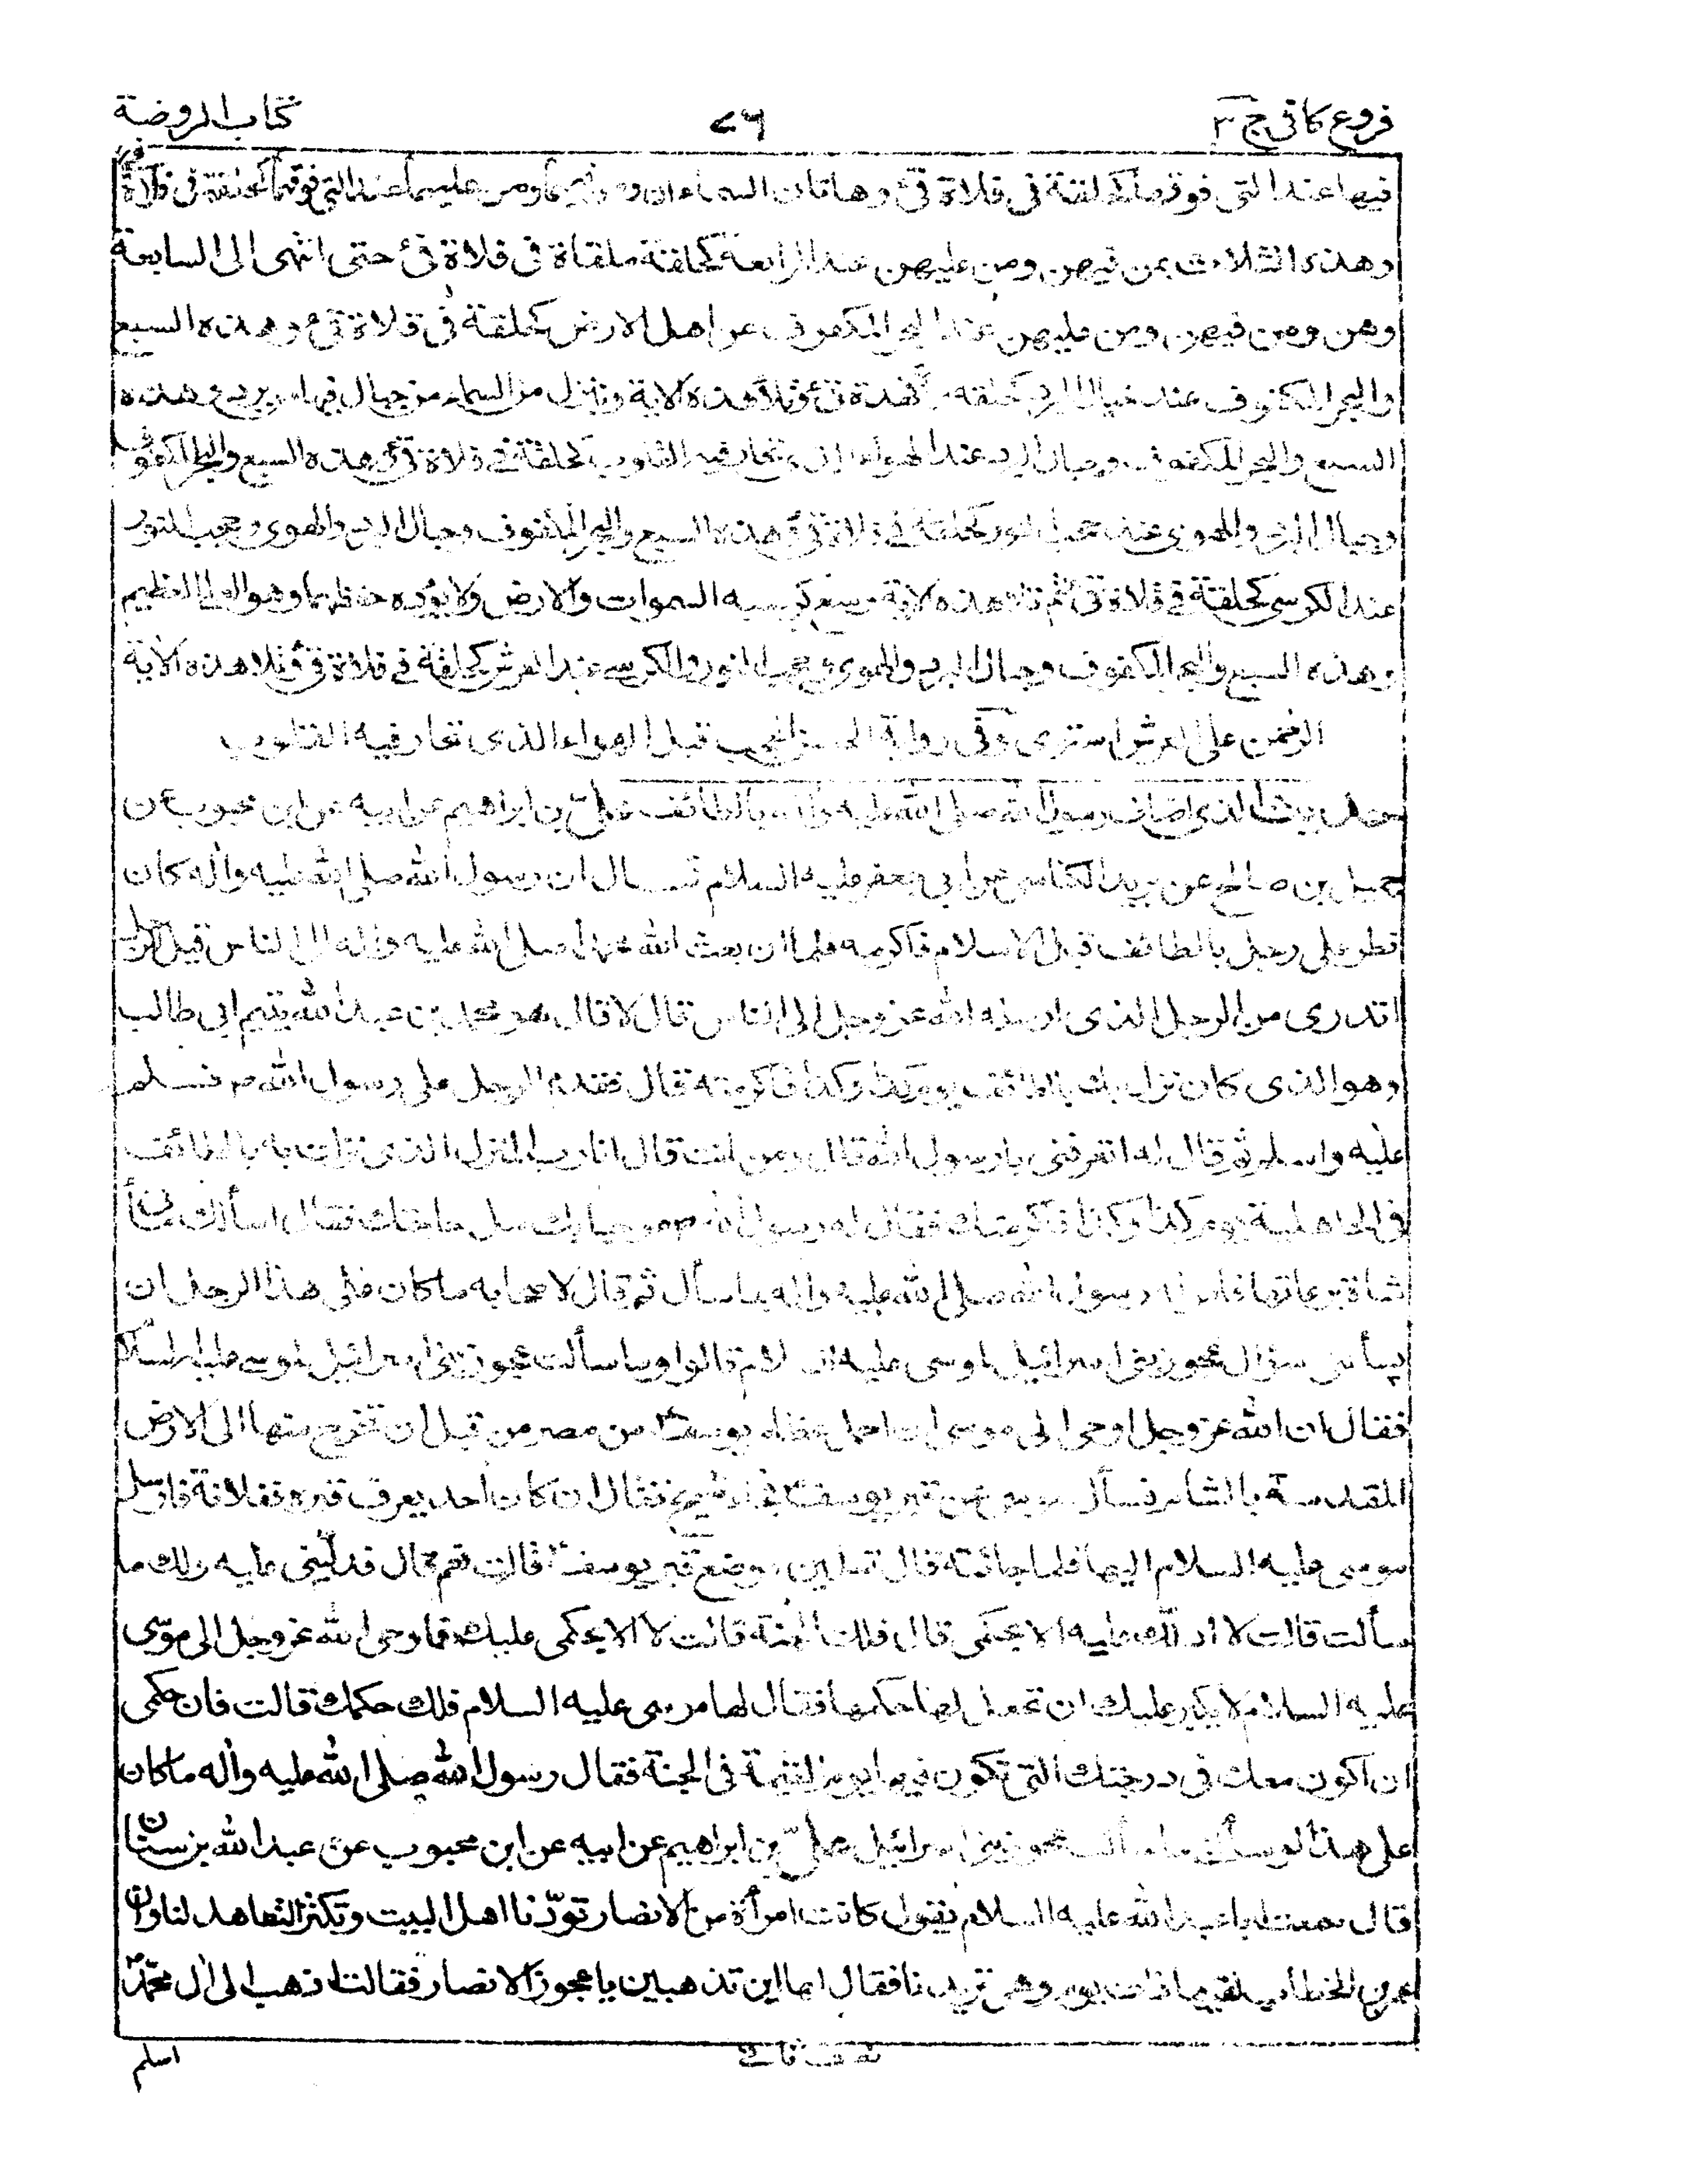 فروع كافى ج ٣
٧٦
كتاب الروضة
فيها عند التى فوقها كحلقة فى فلاة قىّ وهاتان السماءان ومن فيهما ومن عليهما عند التى فوقهما كحلقة فى فلاة قى
وهذه الثلاث بمن فيهن ومن عليهن عند الرابعة كحلقة ملقاة فى فلاة قىّ حتى انتهى الى السابعة
وهن ومن فيهن ومن عليهن عند البحر المكفوف عن اهل الارض كحلقة فى فلاة قىّ وهذه السبع
والبحر المكفوف عند جبال البرد كحلقة فى فلاة قىّ وتلا هذه الاية وينزل من السماء من جبال فيها من برد وهذه
السبع والبحر المكفوف وجبال البرد عند الهواء الذى تحار فيه القلوب كحلقة فى فلاة قىّ وهذه السبع والبحر المكفوف
وجبال البرد والهوى عند حجب النور كحلقة فى فلاة قىّ وهذه السبع والبحر المكفوف وجبال البرد والهوى وحجب النور
عند الكرسى كحلقة فى فلاة قىّ ثم تلا هذه الاية وسع كرسيه السموات والارض ولا يؤده حفظهما وهو العلى العظيم
وهذه السبع والبحر المكفوف وجبال البرد والهوى وحجب النور والكرسى عند العرش كحلقة فى فلاة قىّ وتلا هذه الاية
الرحمن على العرش استوى وفى رواية الحسن الحجب قبل الهواء الذى تحار فيه القلوب
حديث الذى اضاف رسول الله صلى الله عليه واله بالطائف علىّ بن ابراهيم عن ابيه عن ابن محبوب عن
جميل بن صالح عن بريد الكناسى عن ابى جعفر عليه السلام قال ان رسول الله صلى الله عليه واله كان
نزل على رجل بالطائف قبل الاسلام فاكرمه فلما ان بعث الله محمدا صلى الله عليه واله الى الناس قيل للرجل
اتدرى من الرجل الذى ارسله الله عز وجل الى الناس قال لا قال هو محمد بن عبد الله يتيم ابى طالب
وهو الذى كان نزل بك بالطائف يوم كذا وكذا فاكرمته قال فقدم الرجل على رسول الله ص فسلم
عليه واسلم ثم قال له اتعرفنى يا رسول الله قال ومن انت قال انا رب المنزل الذى نزلت به بالطائف
فى الجاهلية يوم كذا وكذا فاكرمتك فقال له رسول الله ص مرحبا بك سل حاجتك فقال اسألك مأتى
شاة برعاتها فامر له رسول الله صلى الله عليه واله بما سأل ثم قال لاصحابه ما كان على هذا الرجل ان
يسألنى سؤال عجوز بنى اسرائيل لموسى عليه السلام قالوا وما سألت عجوز بنى اسرائيل لموسى عليه السلام
فقال ان الله عز وجل اوحى الى موسى ان احمل عظام يوسف من مصر من قبل ان تخرج منها الى الارض
المقدسة بالشام فسأل موسى عن قبر يوسف فجاءه شيخ فقال ان كان احد يعرف قبره ففلانة فارسل
موسى عليه السلام اليها فلما جائته قال تعلمين موضع قبر يوسف قالت نعم قال فدلينى عليه ولك ما
سألت قالت لا ادلك عليه الا بحكمى قال فلك الجنة قالت لا الا بحكمى عليك فاوحى الله عز وجل الى موسى
عليه السلام لا يكبر عليك ان تجعل لها حكمها فقال لها موسى عليه السلام فلك حكمك قالت فان حكمى
ان اكون معك فى درجتك التى تكون فيها يوم القيمة فى الجنة فقال رسول الله صلى الله عليه واله ما كان
على هذا لو سألنى ما سألت عجوز بنى اسرائيل علىّ بن ابراهيم عن ابيه عن ابن محبوب عن عبد الله بن سنان
قال سمعت ابا عبد الله عليه السلام يقول كانت امرأة من الانصار تودّنا اهل البيت وتكثر التعاهد لنا وان
عمر بن الخطاب لقيها ذات يوم وهى تريدنا فقال لها اين تذهبين يا عجوز الانصار فقالت اذهب الى آل محمّد
اسلم